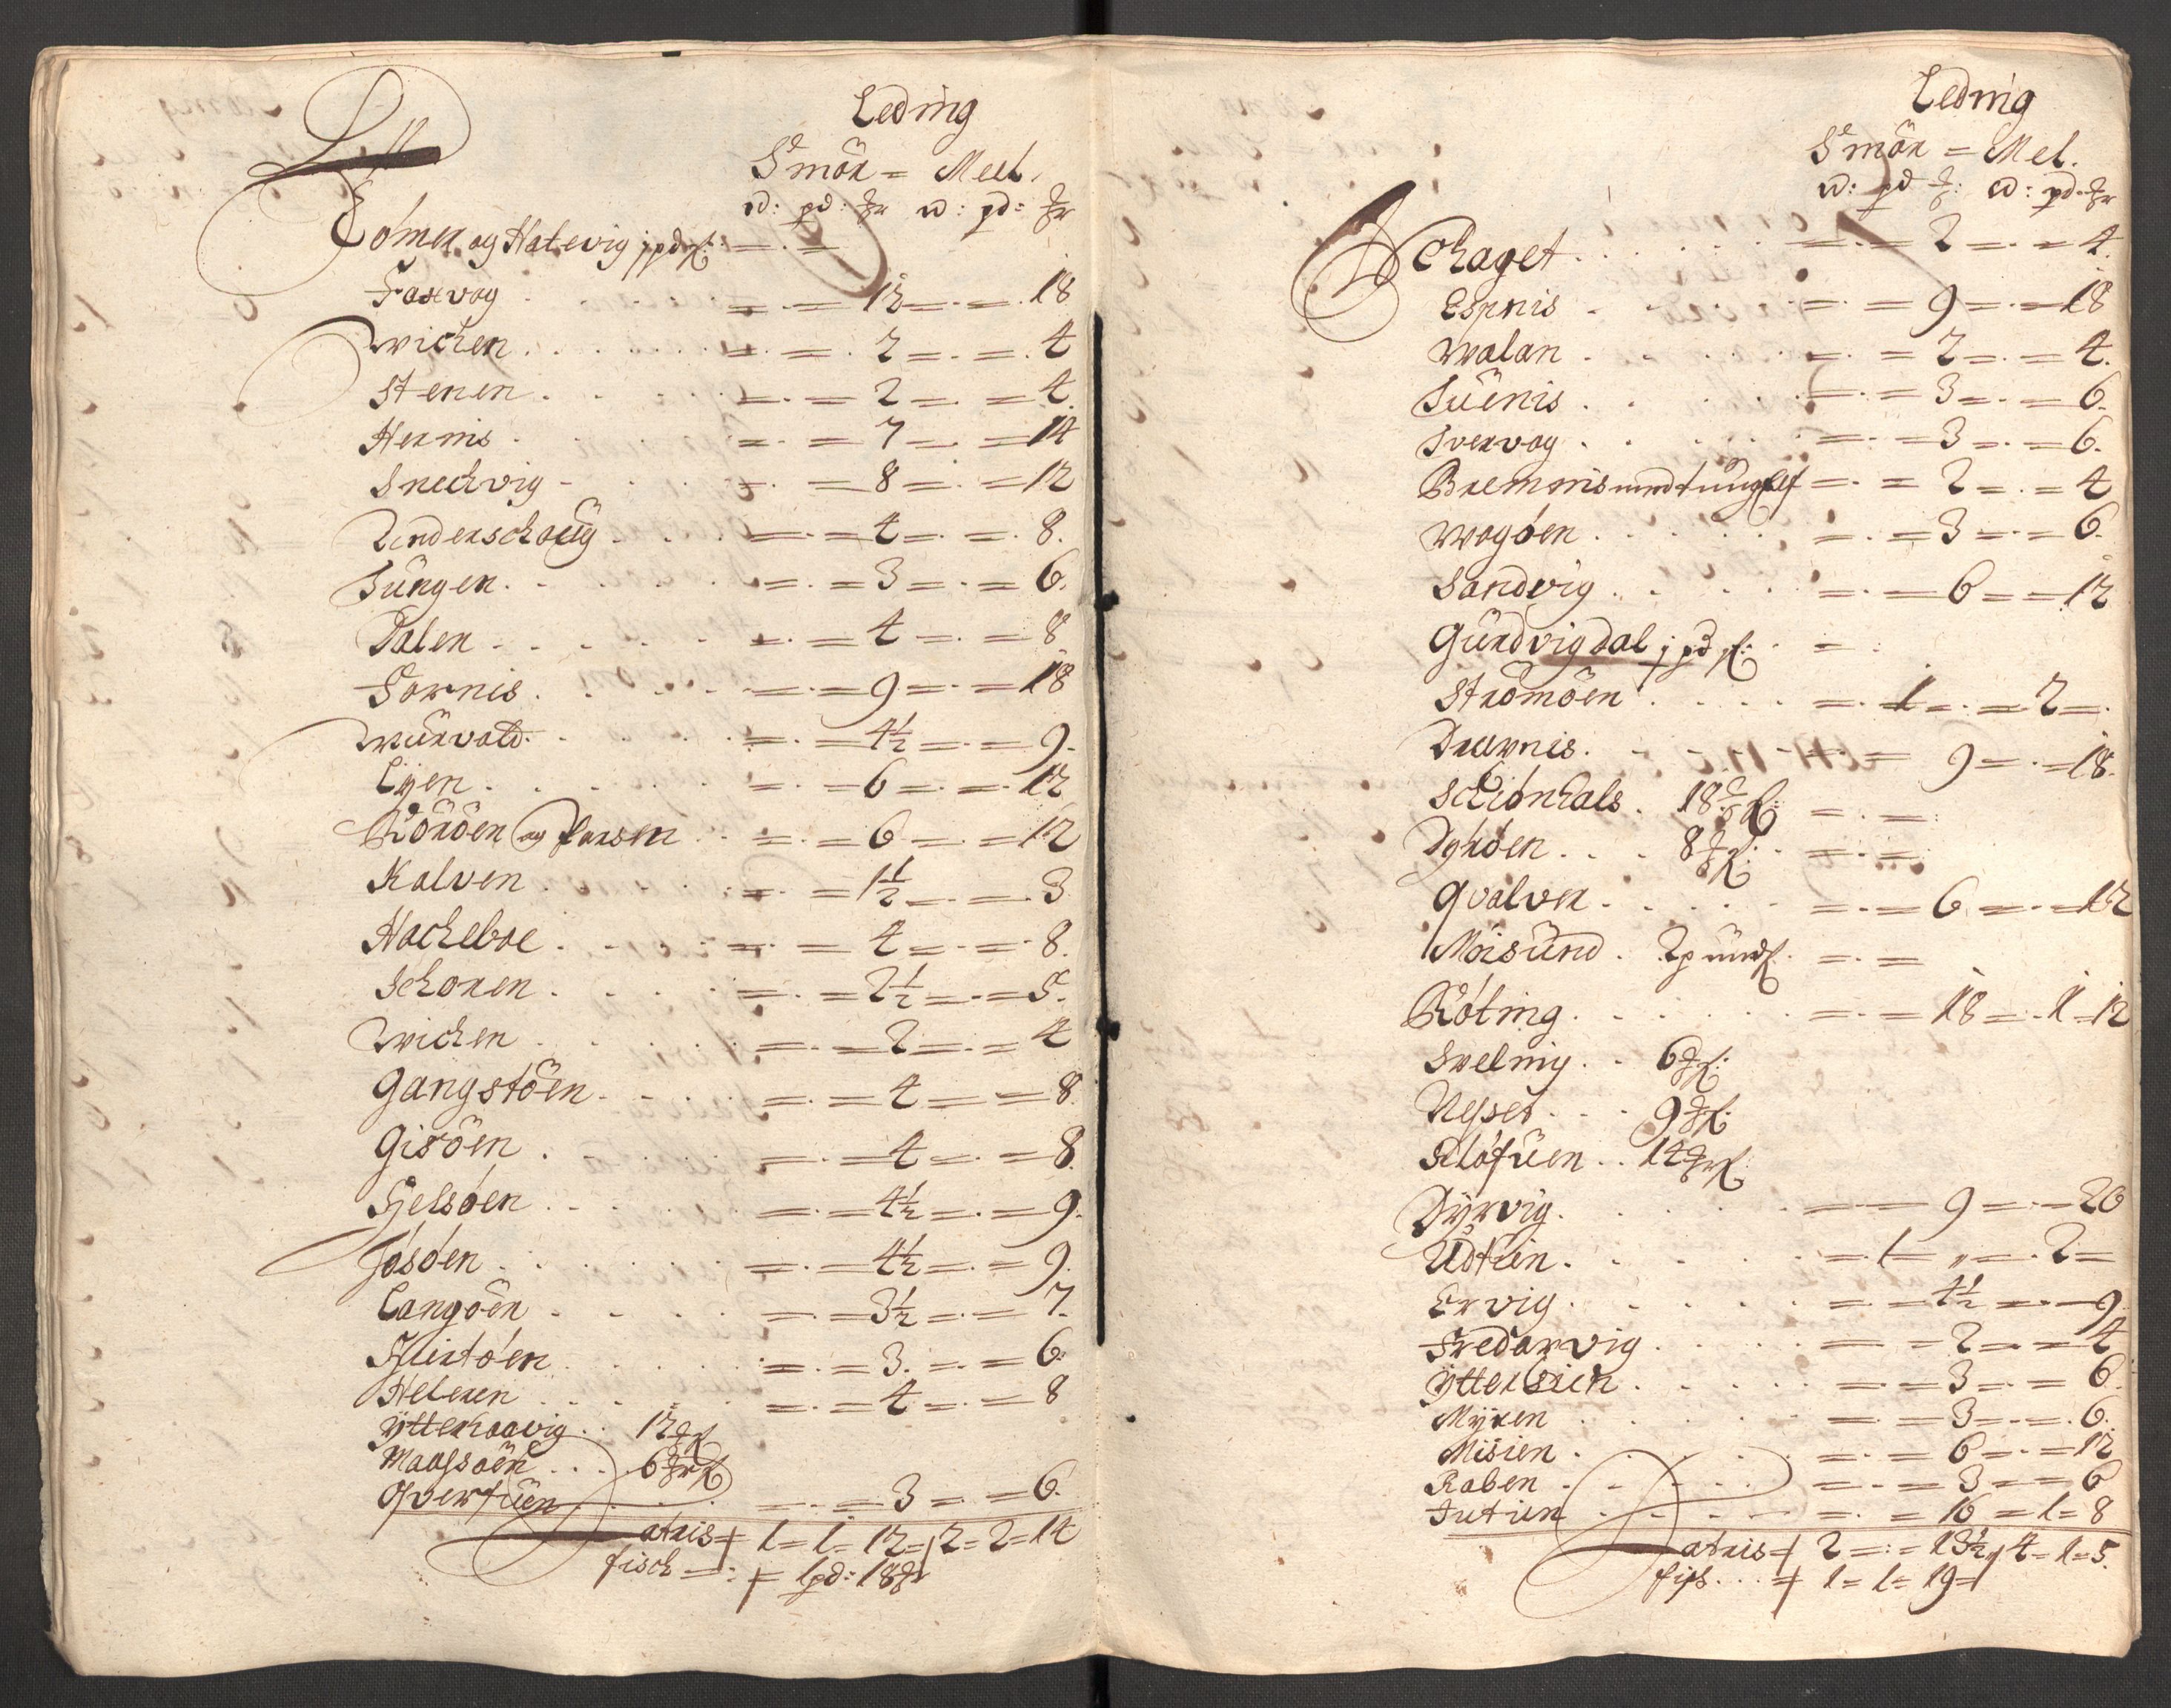 Leding
Smör = Meel.
w: pd: ꝶ w: pd: ꝶ
Eómer og Hatevig j pd f: = . =
Faxvog . = . = 13 = . = . 18
Wichen . . . = . = . 2 = . = . 4
Stenen . . . = . = 2 = . = 4
Hernis . = . = 7 = . = 14
Snechvig . = . = 8 = . = 12
Underschoug . = . = 4 = . = . 8.
Sungen . . = . = 3 = . = 6.
Dalen . . . = . = 4 = . = 8
Fornis . . = . = 9 = . = 18
Wurvold . . = . = 4½ = . = 9.
Lyen . . . = . = 6 = . = 12
Röröen og Parsen . = . = 6 = . = 12
Kalven . . = . = 1½ = . = 3
Hacheboe . . = . = 4 = . = 8.
Schoren . . . = . = 2½ = . = 5.
Wichen . . = . = 2 = . = 4
Gangstöen . . = . = 4 = . = 8
Gisöen . . = . = 4 = . = 8.
Fjelsöen . . . = . = 4½ = . = 9.
Jösöen . . . = . = 4½ = . = 9.
Langöen . . . = . = 3½ = . = 7.
Hiertöen . . . = . = 3 . = . = 6.
Heleren . . . = . = 4 = . = 8
Ytterhaavig . . 12 ꝶ f
Maassöen . . . 6 ꝶ f
Overtuen . . . = . = 3 = . = 6.
Latris = 1 = 1 = 12 = 2 = 2 = 14
fisch = : = 1 pd: 18 ꝶ
Leding
Smör = Mel.
w: pd ꝶ: w: pd: ꝶ
Achaget . . . = . = 2 = . = 4.
Espnis . . = . = 9 = . = 18
Walan . . . = . = 2 = . = 4.
Suenis . . . = . = 3 = . = 6.
Svervog . . . = . = 3 = . = 6.
Bremnis = . = 2 = . = 4
Wogöen . . . = . = 3 = . = 6.
Sandvig . . . = . = 6 = = 12
Gurdvigdal j pd f: . = . :
Strömöen . . . = . 1 = . = 2 = .
Duurnis . . . = . = 9 = . = 18.
Schiönhals . 18 ꝶ f: = . = :
Dyröen . . . 8 ꝶ f: . = . =
Qvalven . . . = . = 6 = . = 12
Moisund . 2 pund f. = . =
Röting . . . = . = 18 = . 1 = 12
Svelnig . . 6 ꝶ f:
Nesset . . . 9 ꝶ f:
Kløfuen . . 14 ꝶ f:
Dyrvig . . . = = 9 = . = 20
Udtuen . . . = . 1 = „ = . 2 =
Ervig . . . = . = 4½ = . = 9
Fredarvig . . . = . = 2 = . = 4
Yttersien . . . = . = 3 = . = 6.
Myren . . . = . = 3 = . = . 6.
Misien . . . = . = 6 = . = 12
Raben . . . = . = 3 = . = 6
Intien . . . = . = 16 = 1 = 8
Latris = 2 = : = 13½ = 4 = 1 = 5.
fisch . . . = 1 = 1 = 19 =